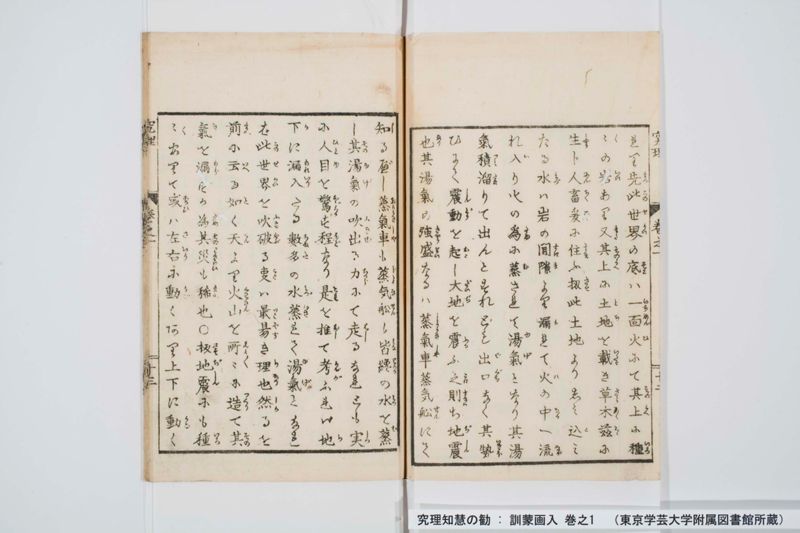 究理
巻之一
十二
先此世界の底ハ一面火にて其上に種
〻の岩あり又其上に土地を載き草木茲に
生ト人畜爰に住ふ扨此土地より志ミ込ミ
たる水ハ岩の間隙より漏れて火の中へ流
れ入り火の為に蒸されて湯氣となり其湯
氣積溜りて出んとすれども出口なく其勢
ひにて震動を起し大地を震ふ之則ち地震
也其湯氣の強盛なるハ蒸氣車蒸気舩にて
知るべし蒸氣車も蒸気舩も皆纔の水を蒸
し其湯氣の吹出る力にて走るなれども実
に人目を驚す程なり是を推て考ふれバ地
下に漏入たる數多の水蒸れて湯氣となれ
ば此世界を吹破る叓ハ最易き理也然るを
前に云る如く天より火山を所〻に造て其
氣を漏すの為其災も稀也〇扨地震にも種
〻ありて或ハ左右に動くあり上下に動く
究理
十三
究理知慧の勧 : 訓蒙画入 巻之1 (東京学芸大学附属図書館所蔵)